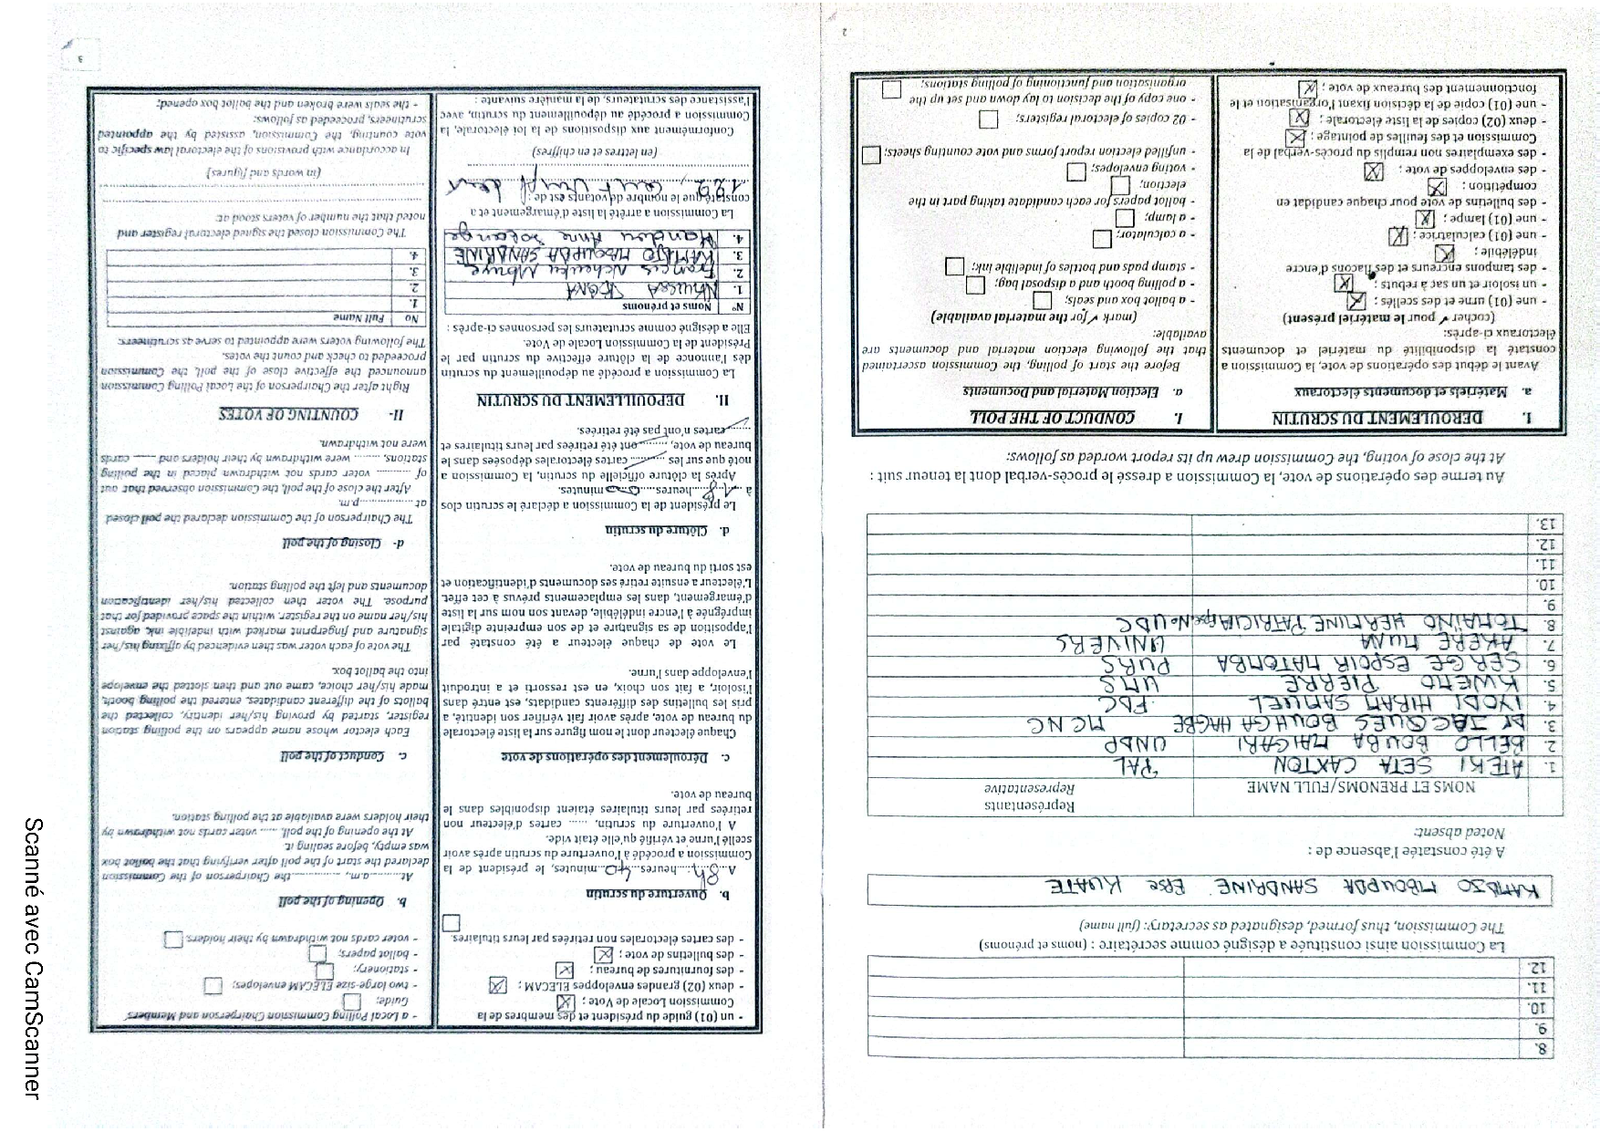 8.
9.
10.
11.
12.
La Commission ainsi constituée a désigné comme secrétaire : (noms et prénoms)
The Commission, thus formed, designated as secretary: (full name)
KAMDJO MBOUPDA SANDRINE EPSE KUATE
A été constatée l'absence de :
Noted absent:
NOMS ET PRENOMS/FULL NAME
Représentants
Representative
1. ATEKI SETA CAXTON PAL
2. BELLO BOUBA MAIGARI UNDP
3. Dr JACQUES BOUHGA HAGBE MCNC
4. IYODI HIRAM SAMUEL FDC
5. KWEMO PIERRE UMS
6. SERGE ESPOIR MATOMBA PURS
7. AKERE MUNA UNIVERS
8. TOMAÏNO HERMINE PATRICIA epse Ndam UDC
9.
10.
11.
12.
13.
Au terme des opérations de vote, la Commission a dressé le procès-verbal dont la teneur suit :
At the close of voting, the Commission drew up its report worded as follows:
I. DEROULEMENT DU SCRUTIN
a. Matériels et documents électoraux
Avant le début des opérations de vote, la Commission a
constaté la disponibilité du matériel et documents
électoraux ci-après:
(cocher ✓ pour le matériel présent)
- une (01) urne et des scellés : ☒
- un isoloir et un sac à rebuts : ☒
- des tampons encreurs et des flacons d'encre
indélébile : ☒
- une (01) calculatrice : ☒
- une (01) lampe : ☒
- des bulletins de vote pour chaque candidat en
compétition : ☒
- des enveloppes de vote : ☒
- des exemplaires non remplis du procès-verbal de la
Commission et des feuilles de pointage : ☒
- deux (02) copies de la liste électorale : ☒
- une (01) copie de la décision fixant l'organisation et le
fonctionnement des bureaux de vote : ☒
I. CONDUCT OF THE POLL
a. Election Material and Documents
Before the start of polling, the Commission ascertained
that the following election material and documents are
available:
(mark ✓ for the material available)
- a ballot box and seals; ☐
- a polling booth and a disposal bag; ☐
- stamp pads and bottles of indelible ink; ☐
- a calculator; ☐
- a lamp; ☐
- ballot papers for each candidate taking part in the
election; ☐
- voting envelopes; ☐
- unfilled election report forms and vote counting sheets; ☐
- 02 copies of electoral registers; ☐
- one copy of the decision to lay down and set up the
organisation and functioning of polling stations; ☐
2
- un (01) guide du président et des membres de la
Commission Locale de Vote : ☒
- deux (02) grandes enveloppes ELECAM : ☒
- des fournitures de bureau : ☒
- des bulletins de vote : ☒
- des cartes électorales non retirées par leurs titulaires.
☐
b. Ouverture du scrutin
A 8h heures 40 minutes, le président de la
Commission a procédé à l'ouverture du scrutin après avoir
scellé l'urne et vérifié qu'elle était vide.
A l'ouverture du scrutin, ...... cartes d'électeur non
retirées par leurs titulaires étaient disponibles dans le
bureau de vote.
c. Déroulement des opérations de vote
Chaque électeur dont le nom figure sur la liste électorale
du bureau de vote, après avoir fait vérifier son identité, a
pris les bulletins des différents candidats, est entré dans
l'isoloir, a fait son choix, en est ressorti et a introduit
l'enveloppe dans l'urne.
Le vote de chaque électeur a été constaté par
l'apposition de sa signature et de son empreinte digitale
imprégnée à l'encre indélébile, devant son nom sur la liste
d'émargement, dans les emplacements prévus à cet effet.
L'électeur a ensuite retiré ses documents d'identification et
est sorti du bureau de vote.
d. Clôture du scrutin
Le président de la Commission a déclaré le scrutin clos
à 18 heures 00 minutes.
Après la clôture officielle du scrutin, la Commission a
noté que sur les ........ cartes électorales déposées dans le
bureau de vote, ........ ont été retirées par leurs titulaires et
........ cartes n'ont pas été retirées.
II. DEPOUILLEMENT DU SCRUTIN
La Commission a procédé au dépouillement du scrutin
dès l'annonce de la clôture effective du scrutin par le
Président de la Commission Locale de Vote.
Elle a désigné comme scrutateurs les personnes ci-après :
N° Noms et prénoms
1.
2. Francis
3. KAMDJO MBOUPDA SANDRINE
4. Anne Solange
La Commission a arrêté la liste d'émargement et a
constaté que le nombre de votants est de :
122, cent vingt deux
(en lettres et en chiffres)
Conformément aux dispositions de la loi électorale, la
Commission a procédé au dépouillement du scrutin, avec
l'assistance des scrutateurs, de la manière suivante :
- a Local Polling Commission Chairperson and Members'
Guide; ☐
- two large-size ELECAM envelopes; ☐
- stationery; ☐
- ballot papers; ☐
- voter cards not withdrawn by their holders. ☐
b. Opening of the poll
At ............a.m., ............the Chairperson of the Commission
declared the start of the poll after verifying that the ballot box
was empty, before sealing it.
At the opening of the poll, ...... voter cards not withdrawn by
their holders were available at the polling station.
c. Conduct of the poll
Each elector whose name appears on the polling station
register, started by proving his/her identity, collected the
ballots of the different candidates, entered the polling booth,
made his/her choice, came out and then slotted the envelope
into the ballot box.
The vote of each voter was then evidenced by affixing his/her
signature and fingerprint marked with indelible ink, against
his/her name on the register, within the space provided for that
purpose. The voter then collected his/her identification
documents and left the polling station.
d- Closing of the poll
The Chairperson of the Commission declared the poll closed
at ................p.m.
After the close of the poll, the Commission observed that out
of ......... voter cards not withdrawn placed in the polling
stations, ........ were withdrawn by their holders and ...... cards
were not withdrawn.
II- COUNTING OF VOTES
Right after the Chairperson of the Local Polling Commission
announced the effective close of the poll, the Commission
proceeded to check and count the votes.
The following voters were appointed to serve as scrutineers:
No Full Name
1.
2.
3.
4.
The Commission closed the signed electoral register and
noted that the number of voters stood at:
(in words and figures)
In accordance with provisions of the electoral law specific to
vote counting, the Commission, assisted by the appointed
scrutineers, proceeded as follows:
- the seals were broken and the ballot box opened;
3
Scanné avec CamScanner